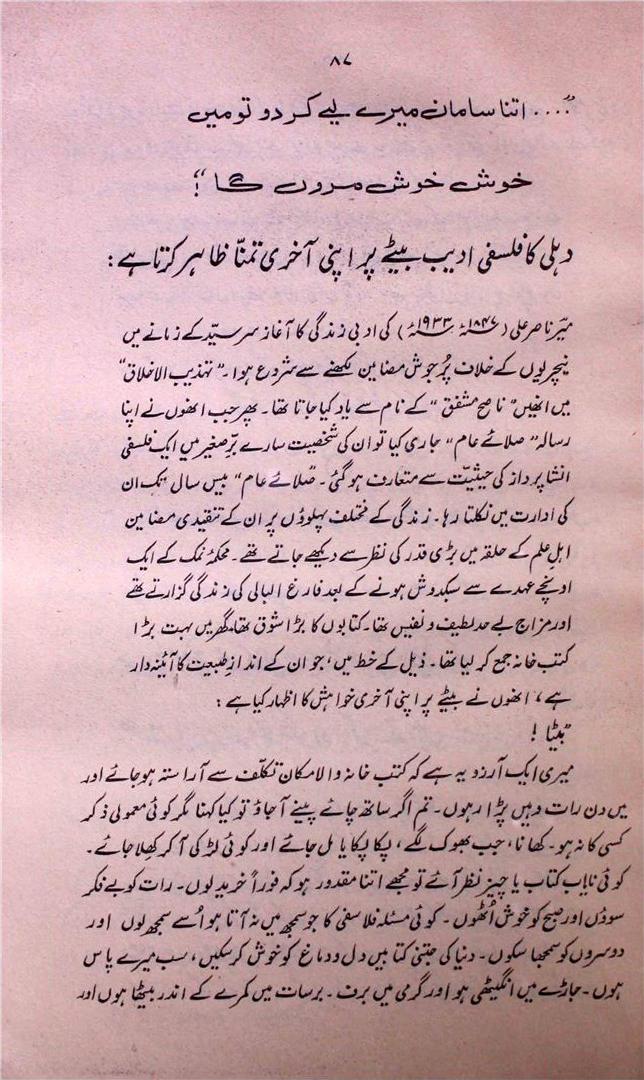 ۸۷
".... اتنا سامان میرے لیے کر دو تو میں
خوش خوش مروں گا"!
دہلی کا فلسفی ادیب بیٹے پر اپنی آخری تمنّا ظاہر کرتا ہے:
میر ناصر علی (۱۸۴۷ء ۱۹۳۳ء) کی ادبی زندگی کا آغاز سر سیّد کے زمانے میں
نیچریوں کے خلاف پُرجوش مضامین لکھنے سے شروع ہوا۔ "تہذیب الاخلاق"
میں انھیں "ناصح مشفق" کے نام سے یاد کیا جاتا تھا۔ پھر جب انھوں نے اپنا
رسالہ "صلائے عام" جاری کیا تو ان کی شخصیت سارے برّصغیر میں ایک فلسفی
انشا پرداز کی حیثیّت سے متعارف ہو گئی۔ "صلائے عام" بیس سال تک ان
کی ادارت میں نکلتا رہا۔ زندگی کے مختلف پہلوؤں پر ان کے تنقیدی مضامین
اہلِ علم کے حلقہ میں بڑی قدر کی نظر سے دیکھے جاتے تھے۔ محکمۂ نمک کے ایک
اونچے عہدے سے سبکدوش ہونے کے بعد فارغ البالی کی زندگی گزارتے تھے
اور مزاج بے حد لطیف و نفیس تھا۔ کتابوں کا بڑا شوق تھا، گھر میں بہت بڑا
کتب خانہ جمع کر لیا تھا۔ ذیل کے خط میں، جو ان کے اندازِ طبیعت کا آئینہ دار
ہے، انھوں نے بیٹے پر اپنی آخری خواہش کا اظہار کیا ہے:
"بیٹا!
میری ایک آرزو یہ ہے کہ کتب خانہ والا مکان تکلّف سے آراستہ ہو جائے اور
میں دن رات وہیں پڑا رہوں۔ تم اگر ساتھ چائے پینے آ جاؤ تو کیا کہنا مگر کوئی معمولی ذکر
کسی کا نہ ہو۔ کھانا، جب بھوک لگے، پکا پکایا مل جائے اور کوئی لڑکی آ کر کھلا جائے۔
کوئی نایاب کتاب یا چیز نظر آئے تو مجھے اتنا مقدور ہو کہ فوراً خرید لوں۔ رات کو بے فکر
سوؤں اور صبح کو خوش اُٹھوں۔ کوئی مسئلہ فلاسفی کا جو سمجھ میں نہ آتا ہو اُسے سمجھ لوں اور
دوسروں کو سمجھا سکوں۔ دنیا کی جتنی کتابیں دل و دماغ کو خوش کر سکیں، سب میرے پاس
ہوں۔ جاڑے میں انگیٹھی ہو اور گرمی میں برف۔ برسات میں کمرے کے اندر بیٹھا ہوں اور